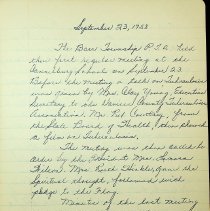 September 23, 1953
The Barr Township P.T.A. held
their first regular meeting at the
Canelburg School on September 23.
Before the meeting a talk on Tuberculosis
was given by Mrs. Clay Young, Executive
Secretary to the Daviess County Tuberculosis
Association. Mr. Courtney, from
the State Board of Health, then played
a film on Tuberculosis.
The meeting was then called to
order by the President Mrs.
Mrs. Ruth gave the
Spiritual thought, followed with
pledge to the flag.
Minutes of the last meeting